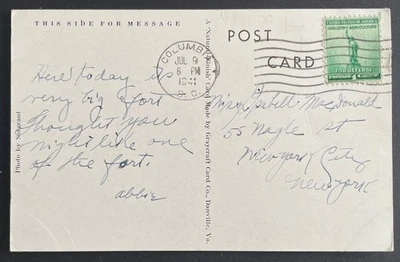 THIS SIDE FOR MESSAGE
Here today is
very big fort
thought you
might like one
of the fort.
abbie
A Natural Finish Card Made by Graycraft Card Co., Danville, Va.
POST
CARD
COLUMBIA
JUL 9
6 PM
1941
S.C.
UNITED STATES OF AMERICA
INDUSTRY·AGRICULTURE
FOR DEFENSE
MacDonald
55 Nagle St
New York City
New York
Photo by